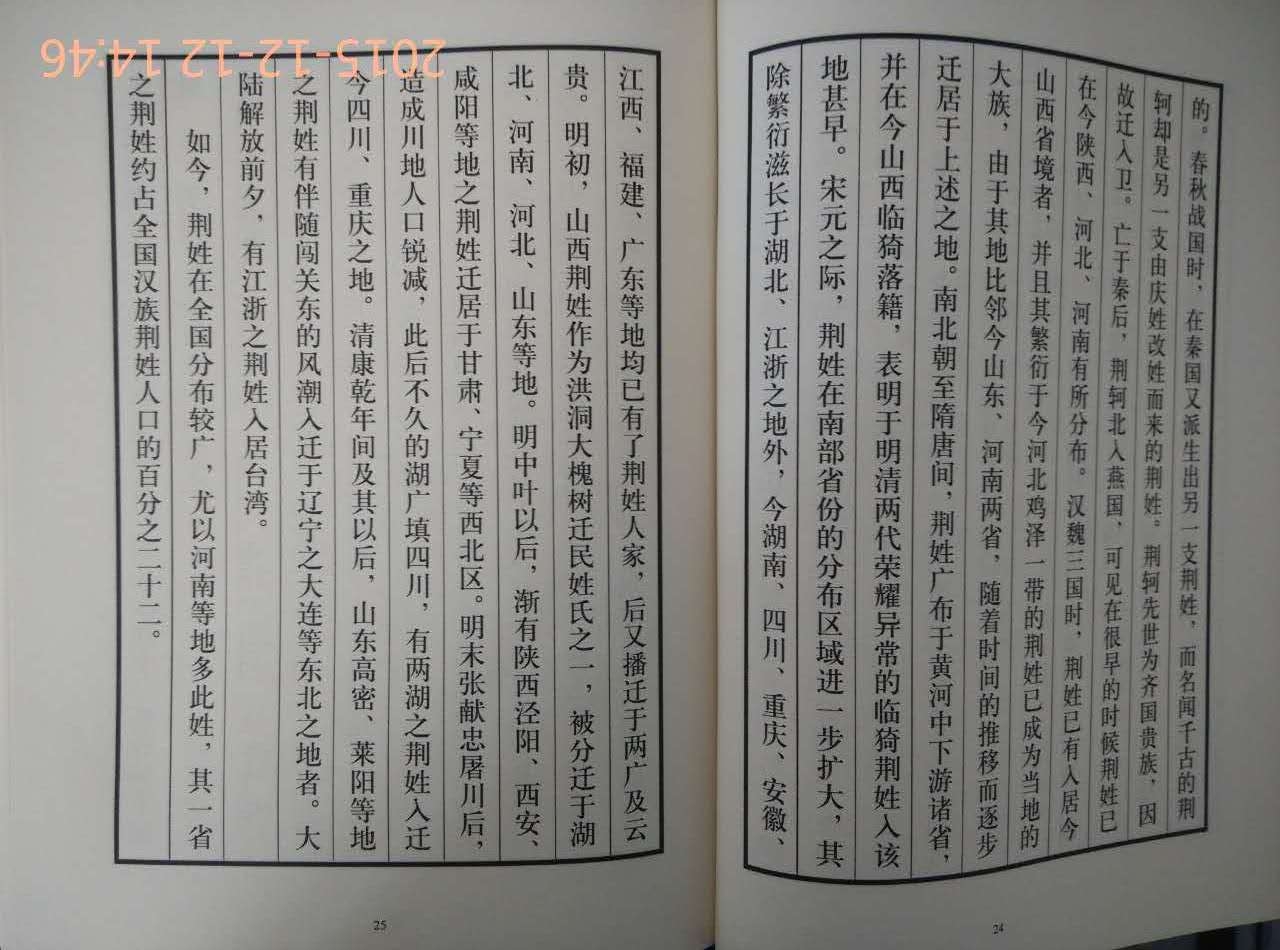 的。春秋战国时，在秦国又派生出另一支荆姓，而名闻千古的荆
轲却是另一支由庆姓改姓而来的荆姓。荆轲先世为齐国贵族，因
故迁入卫。亡于秦后，荆轲北入燕国，可见在很早的时候荆姓已
在今陕西、河北、河南有所分布。汉魏三国时，荆姓已有入居今
山西省境者，并且其繁衍于今河北鸡泽一带的荆姓已成为当地的
大族，由于其地比邻今山东、河南两省，随着时间的推移而逐步
迁居于上述之地。南北朝至隋唐间，荆姓广布于黄河中下游诸省，
并在今山西临猗落籍，表明于明清两代荣耀异常的临猗荆姓入该
地甚早。宋元之际，荆姓在南部省份的分布区域进一步扩大，其
除繁衍滋长于湖北、江浙之地外，今湖南、四川、重庆、安徽、
24
江西、福建、广东等地均已有了荆姓人家，后又播迁于两广及云
贵。明初，山西荆姓作为洪洞大槐树迁民姓氏之一，被分迁于湖
北、河南、河北、山东等地。明中叶以后，渐有陕西泾阳、西安、
咸阳等地之荆姓迁居于甘肃、宁夏等西北区。明末张献忠屠川后，
造成川地人口锐减，此后不久的湖广填四川，有两湖之荆姓入迁
今四川、重庆之地。清康乾年间及其以后，山东高密、莱阳等地
之荆姓有伴随闯关东的风潮入迁于辽宁之大连等东北之地者。大
陆解放前夕，有江浙之荆姓入居台湾。
如今，荆姓在全国分布较广，尤以河南等地多此姓，其一省
之荆姓约占全国汉族荆姓人口的百分之二十二。
25
2015-12-12 14:46